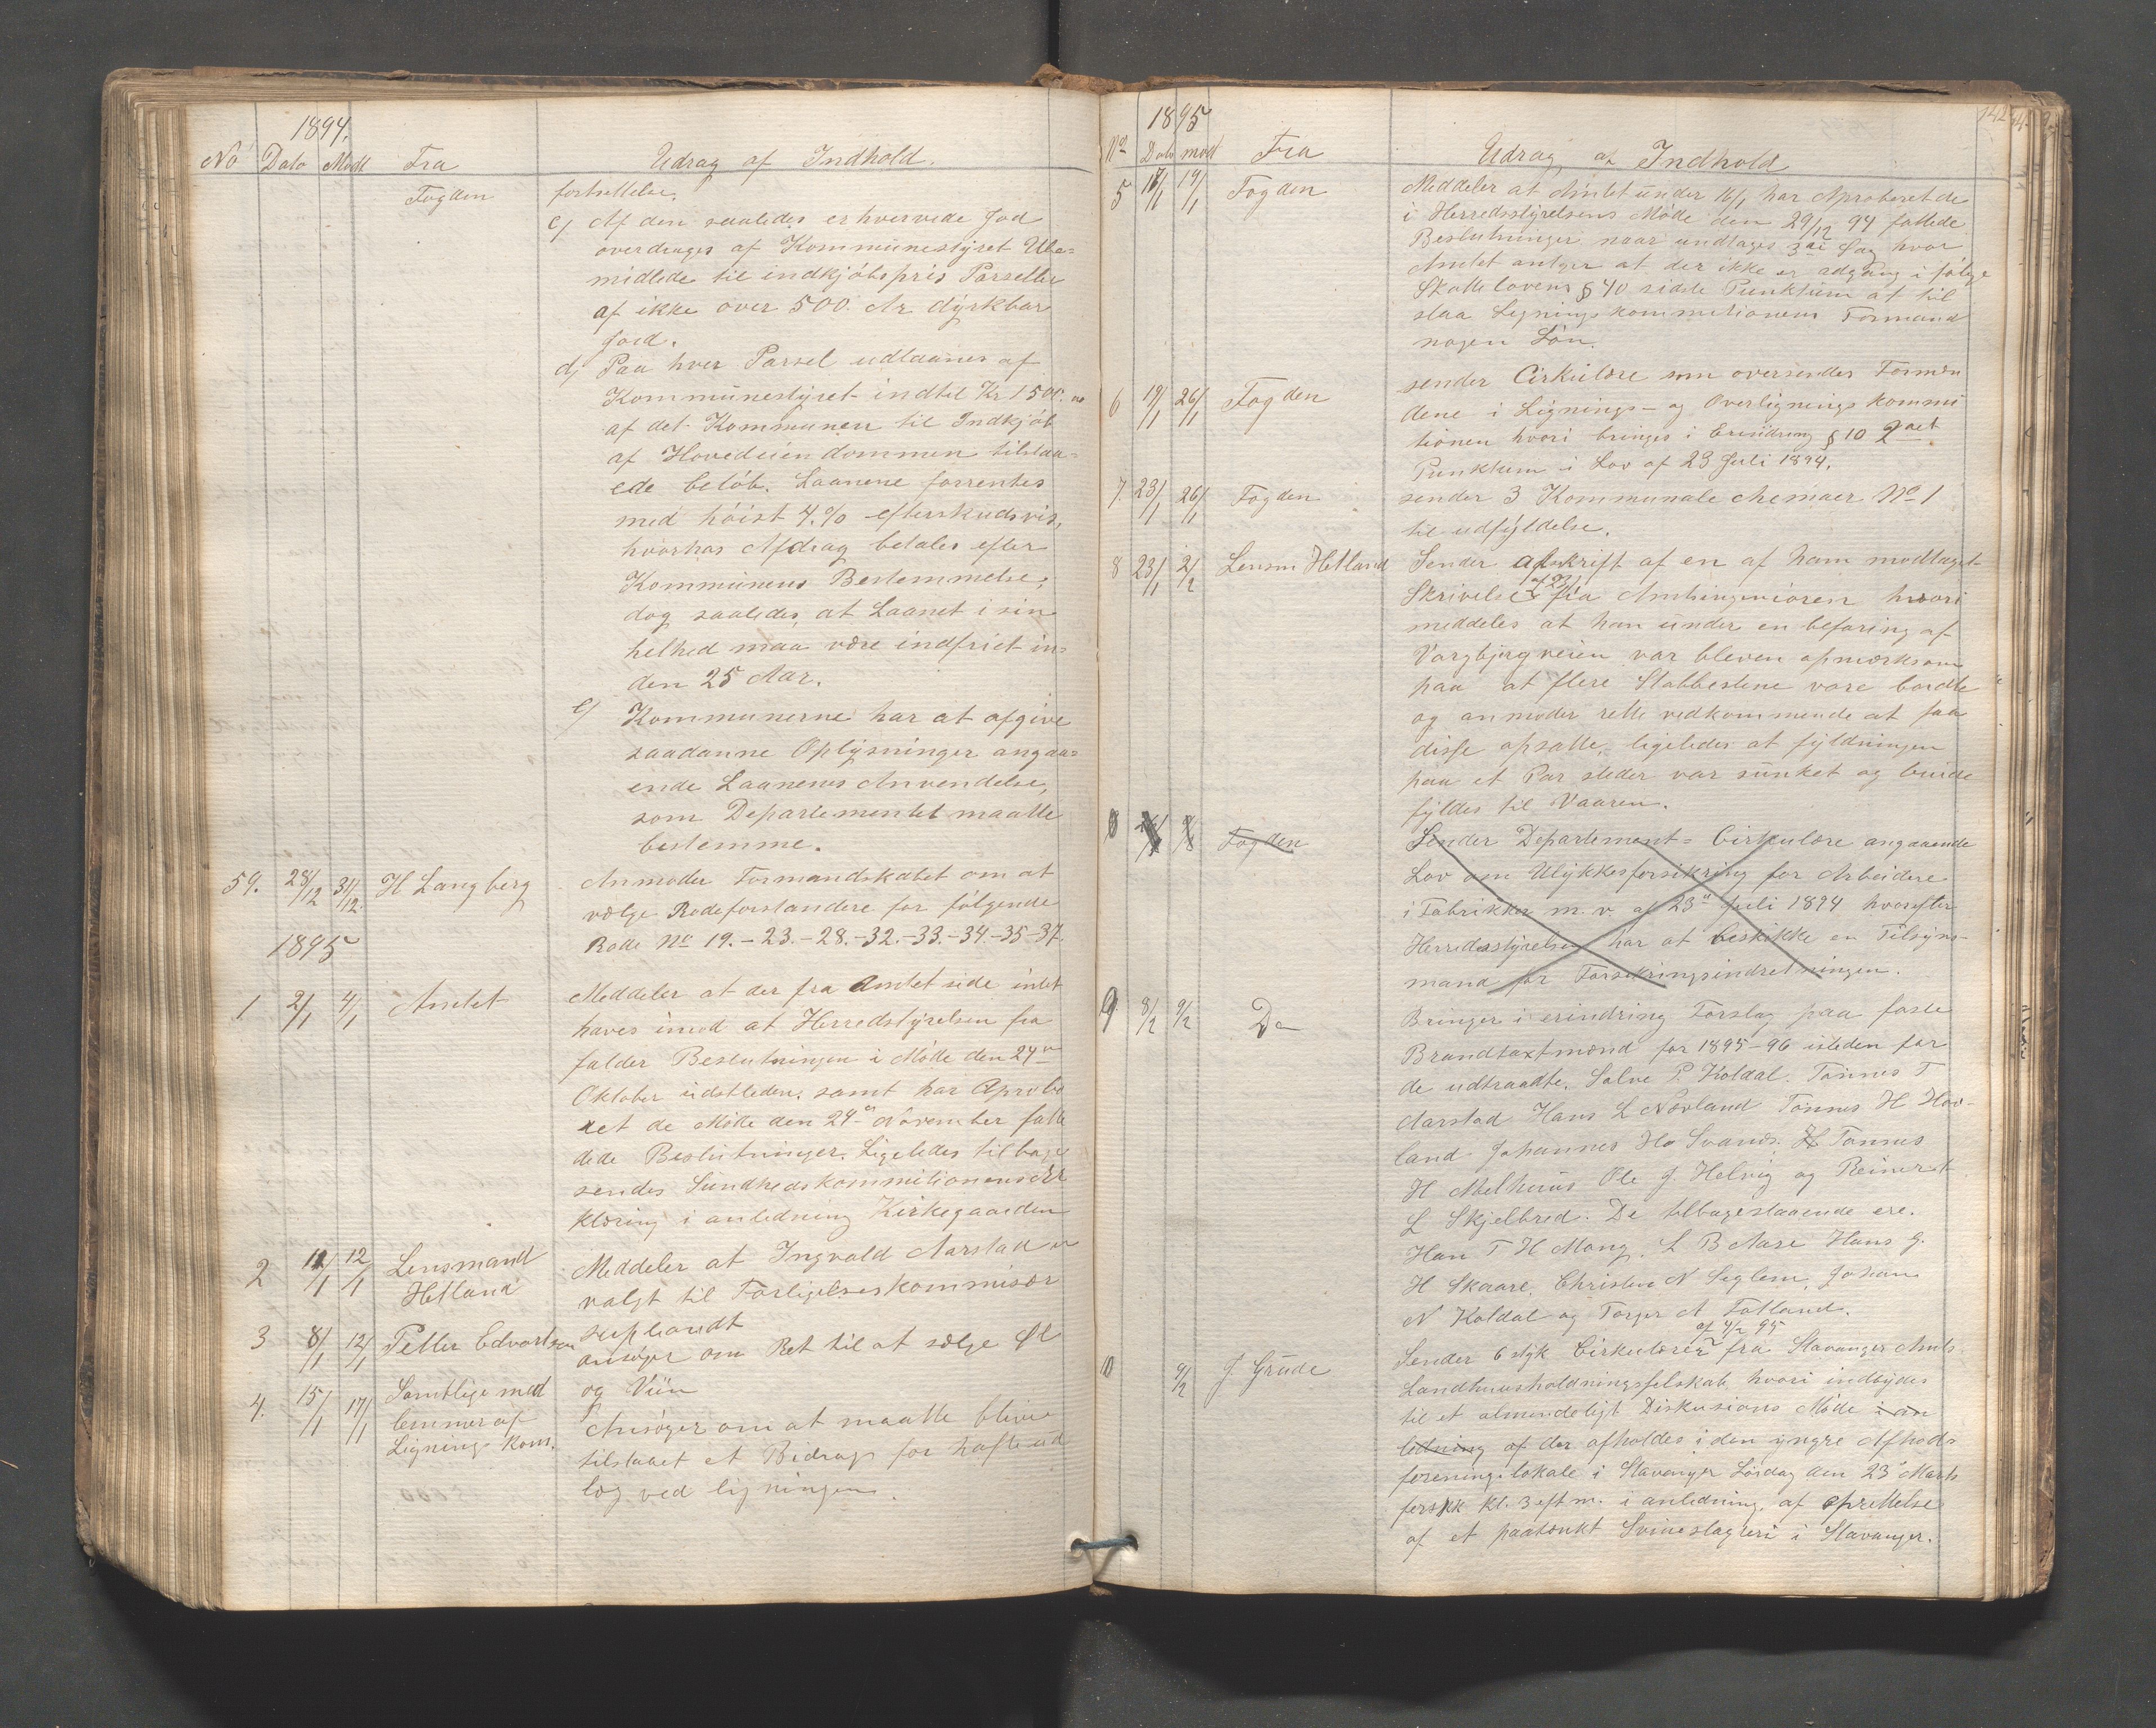 1894.
No Dato Modt Fra Udrag af Indhold.
Fogden fortsettelse.
c) Af den saaledes erhvervede Jod
overdrages af Kommunestyret Ube=
midlede til indkjöbspris Parseller
af ikke over 500. Ar dyrkbar
Jord.
d) Paa hver Parsel udlaanes af
Kommunestyret indtil Kr 1500.
af det Kommunen til Indkjöb
af Hovedeiendommen tilstaa=
ede belöb. Laanene forrentes
med höist 4.% efterskudsvis,
hvorhos Afdrag betales efter
Kommunens Bestemmelse,
dog saaledes, at Laanet i sin
helhed maa være indfriet in=
den 25 Aar.
e) Kommunerne har at afgive
saadanne Oplysninger angaa=
ende Laanenes Anvendelse,
som Departementet maatte
bestemme.
59. 28/12 31/12. H Langberg Anmoder Formandskabet om at
vælge Rodeforstandere for fölgende
Rode No 19.-23.-28.-32.-33.-34.-35-37.
1895
1 2/1 4/1 Amtet Meddeler at der fra Amtet side intet
haves imod at Herredstyrelsen fra
falder Beslutningen i Möde den 24de
Oktober sidstleden, samt har Aprobe
ret de Möde den 24de November fatte
dede Beslutninger. Ligeledes tilbage
sendes Sundhedskommitionens Er
klæring i anledning Kirkegaarden
2 11/1 12/1 Lensmand Meddeler at Ingvald Aarstad er
Hetland valgt til Forligelseskommisær
supleandt
3 8/1 12/1 Petter Edvartsen ansöger om Ret til at sælge Öl
og Viin
4. 15/1 17/1 Samtlige med Ansöger om at maatte blive
lemmer af tilstaaet et Bidrag for hafte ud
Lignings kom. læg ved ligningen.
142
1895
No Dato mod Fra Udrag af Indhold
5 17/1 19/1 Fogden Meddeler at Amtet under 16/1 har Aproberet de
i Herredsstyrelsens Möde den 29/12 94 fattede
Beslutninger naar undtages 3die Sag hvor
Amtet antger at der ikke er adgang i fölge
Skattelovens § 40 sidste Punktum at til
staa Ligningskommitionens Formand
nogen Lön.
6 19/1 26/1 Fogden sender Cirkulære som oversender Formæn
dene i Lignings- og Overlignings kommi
tionen hvori bringes i Erindring § 10 2det
Punktum i Lov af 23 Juli 1894.
7. 23/1 26/1 Fogden sender 3 Kommunale chemaer No 1
til udfyldelse.
8 23/1 2/2 Lensm Hetland Sender afskrift af en af ham modtaget
Skrivelse fra Amtsingeniören hvori
meddeles at han under en befaring af
Vargbjergveien var bleven opmærksom
paa at flere Stabbestene vare bordte
og anmoder rette vedkommende at faa
disse opsatte, ligeledes at fyldningen
paa et Par steder var sunket og burde
fyldes til Vaaren.
Fogden Sender Departement= Cirkulære angaaende
Lov om Ulykkesforsikring for Arbeidere
i Fabrikker m.v. af 23de Juli 1894 hvorefter
Herredsstyrelsen har at beskikke en Tilsyns-
mand for Forsikringsindretningen.
9 8/2 9/2 Do Bringer i erindring Forslag paa faste
Brandtaxtmænd for 1895-96 isteden for
de udtraadte. Salve P. Koldal. Tönnes T
Aarstad Hans L Nörland Tönnes H Hov-
land Johannes Ho Svanes. Tönnes
H Melhuus Ole J. Helvig og Reinert
L Skjelbred. De tilbagestaaende ere.
Han T H Mong. L B Aase Hans G.
H Skaare, Christen N Seglem, Johan
N Koldal og Torger A Fotland.
af 4/2 95
10 9/2 J Grude Sender 6 styk Cirkulærer fra Stavanger Amts
Landhuusholdningsselskab, hvori indbydes
til et almindeligt Diskusions Möde i an
ledning af der afholdes i den yngre Afhods
foreningslokale i Stavanger Lördag den 23de Marts
förstk kl. 3 eft m. i anledning af oprettelse
af et paatænkt Svineslagteri i Stavanger.